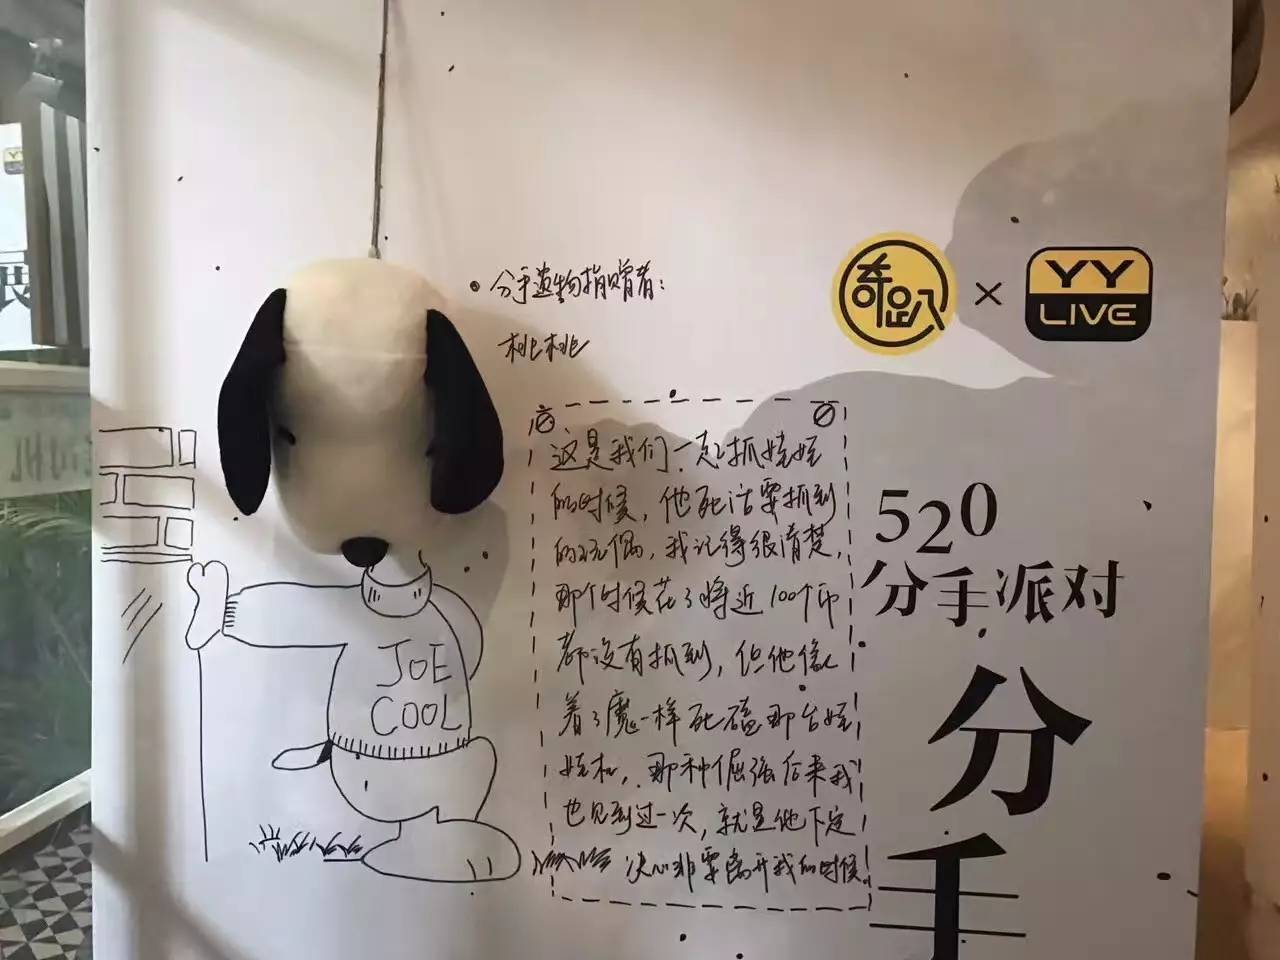 分手遗物捐赠者：
桃桃
奇趴 × YY LIVE
这是我们一起抓娃娃
的时候，他死活要抓到
的玩偶，我记得很清楚，
那个时候花了将近100个币
都没有抓到，但他像
着了魔一样死磕那台娃
娃机，那种倔强后来我
也见到过一次，就是他下定
决心非要离开我的时候。
JOE
COOL
520
分手派对
分
手